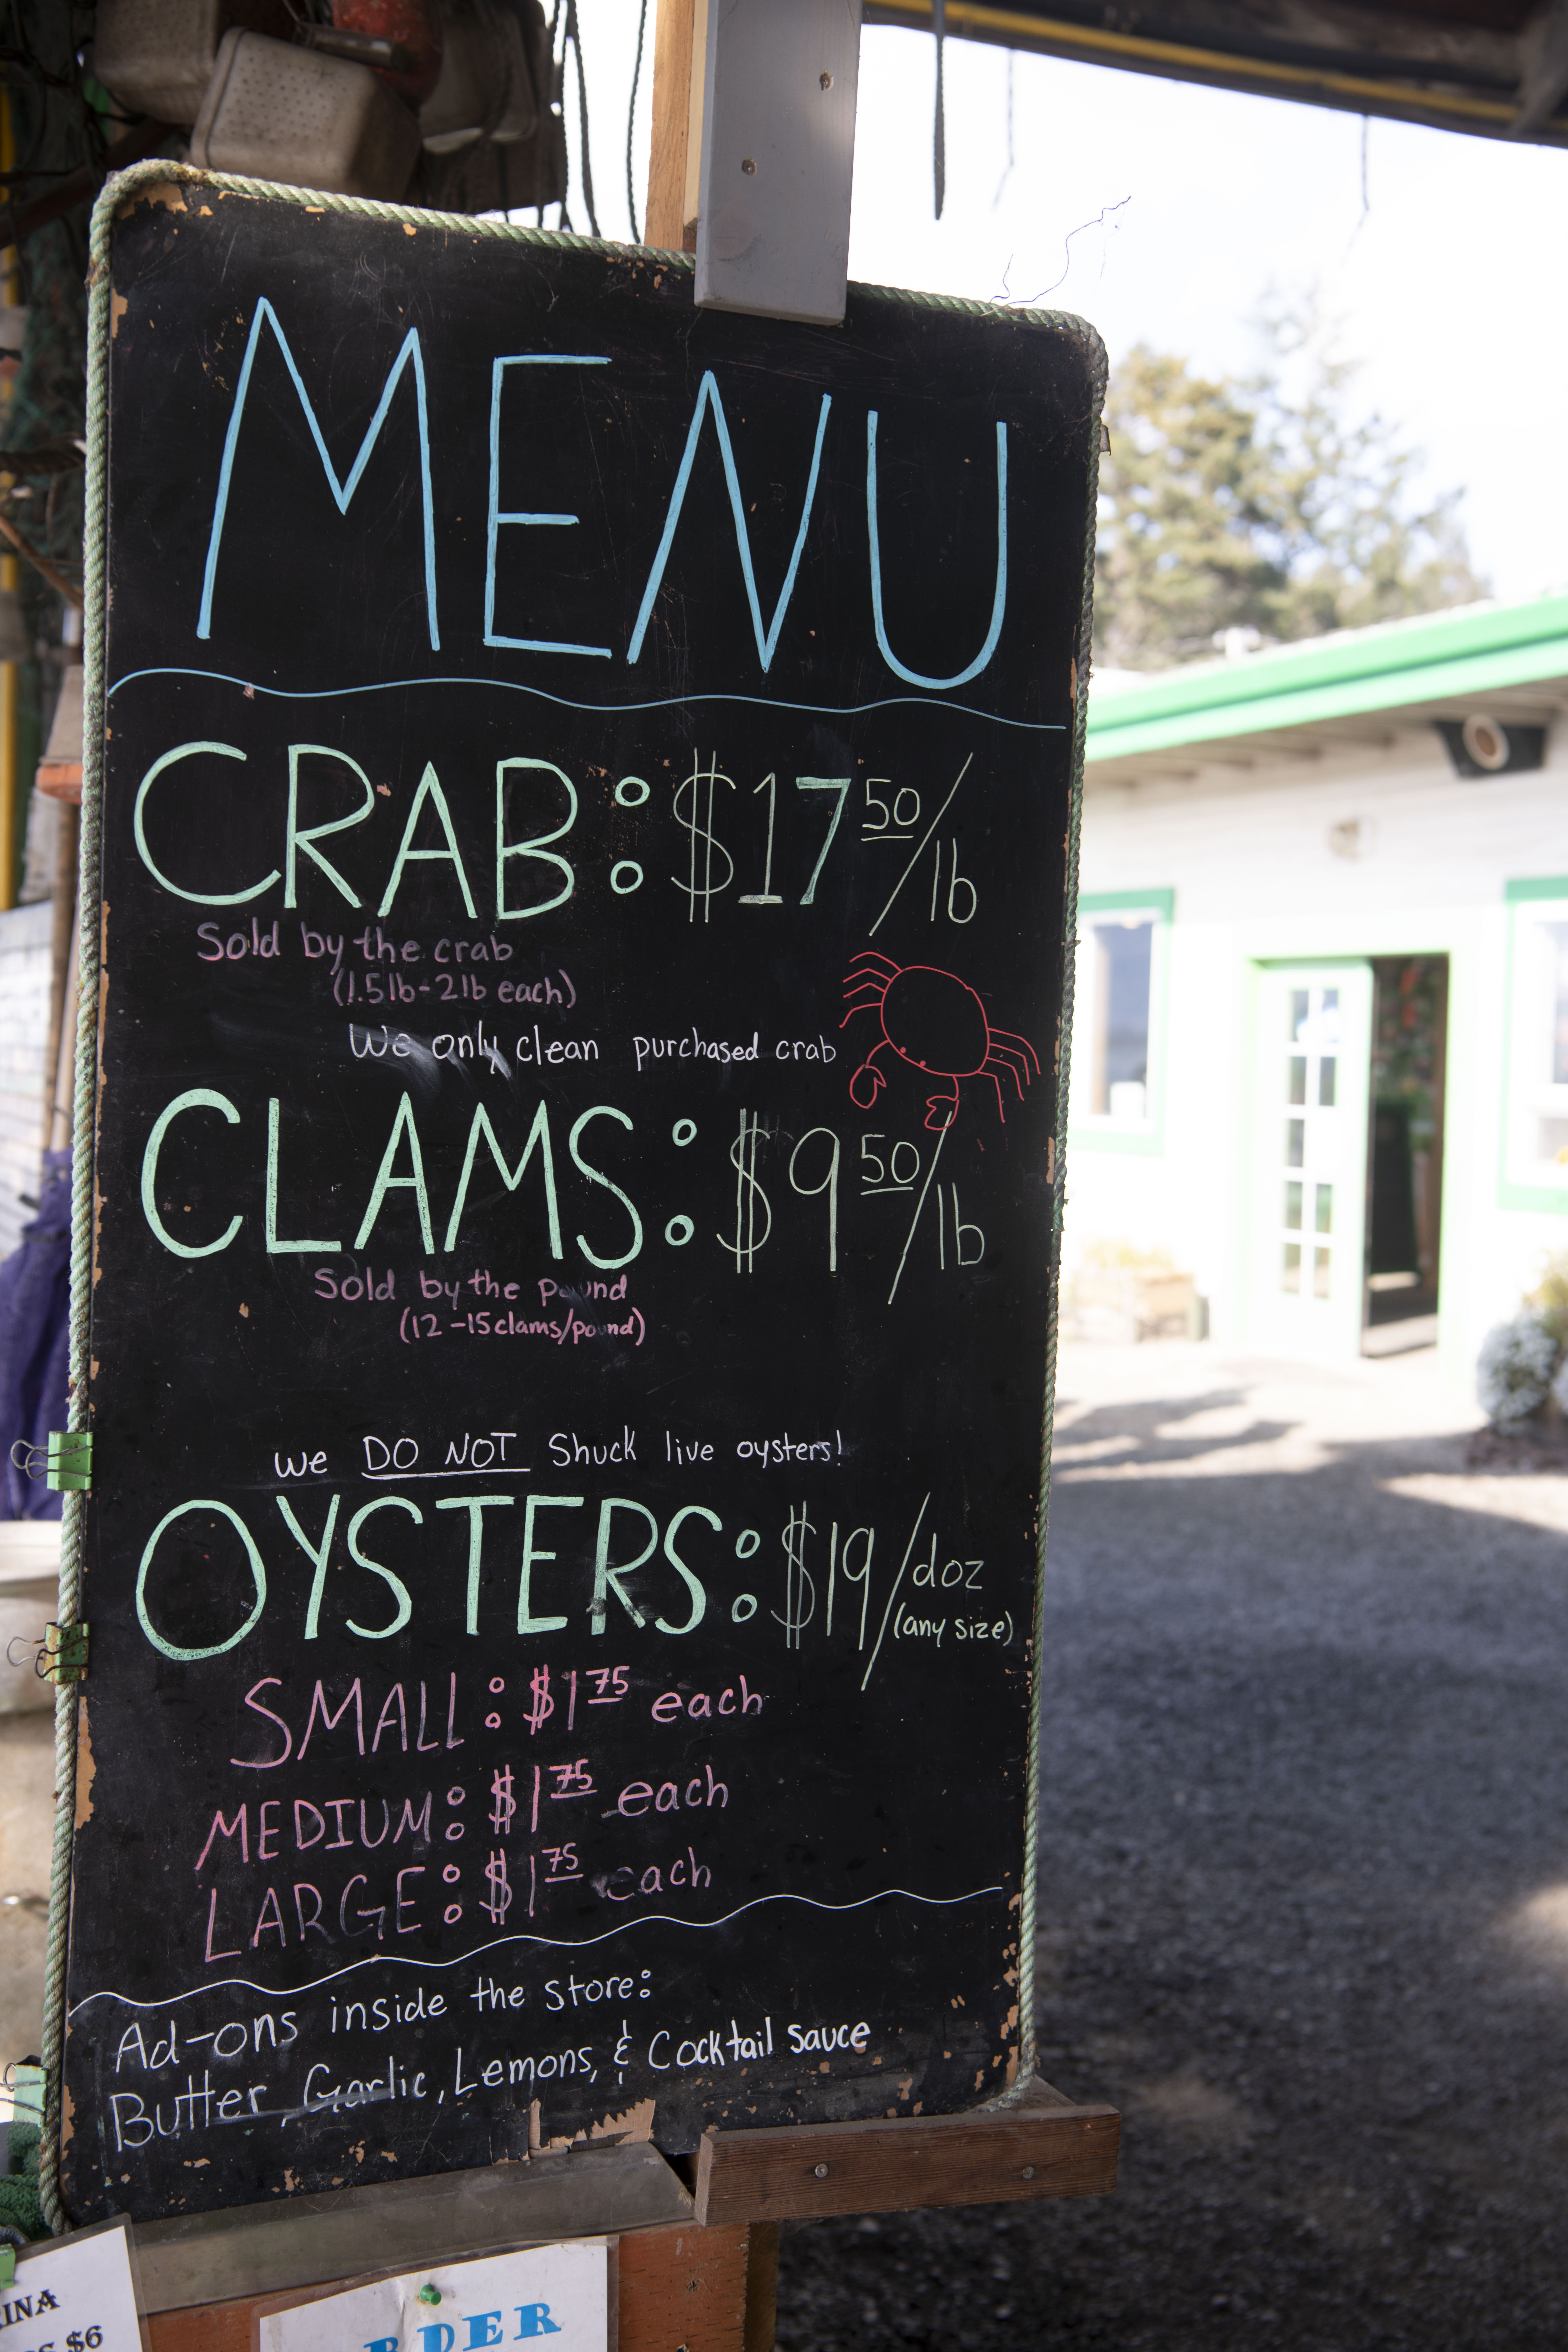 MENU
CRAB: $17 50/lb
Sold by the crab
(1.5lb-2lb each)
We only clean purchased crab
CLAMS: $9 50/lb
Sold by the pound
(12-15clams/pound)
we DO NOT Shuck live oysters!
OYSTERS: $19/doz
(any size)
SMALL: $1 75 each
MEDIUM: $1 75 each
LARGE: $1 75 each
Ad-ons inside the store:
Butter, Garlic, Lemons, & Cocktail sauce
$6